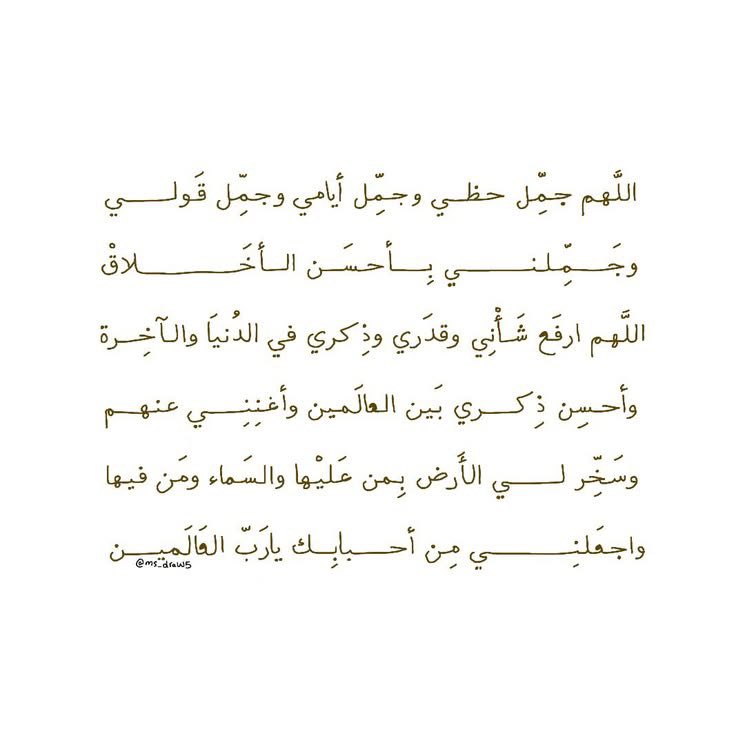 اللَّهم جمِّل حظي وجمِّل أيامي وجمِّل قَولي
وجَمِّلني بِأحسَن الأخَلاقْ
اللَّهم ارفَع شَأْنِي وقدَري وذِكري في الدُنيَا والآخِرة
وأحسِن ذِكري بَين العالَمين وأغنِنِي عنهم
وسَخِّر لي الأَرض بِمن عَليْها والسَماء ومَن فيها
واجعَلنِي مِن أحبابِك يارَبّ العَالَمين
@ms_draw5